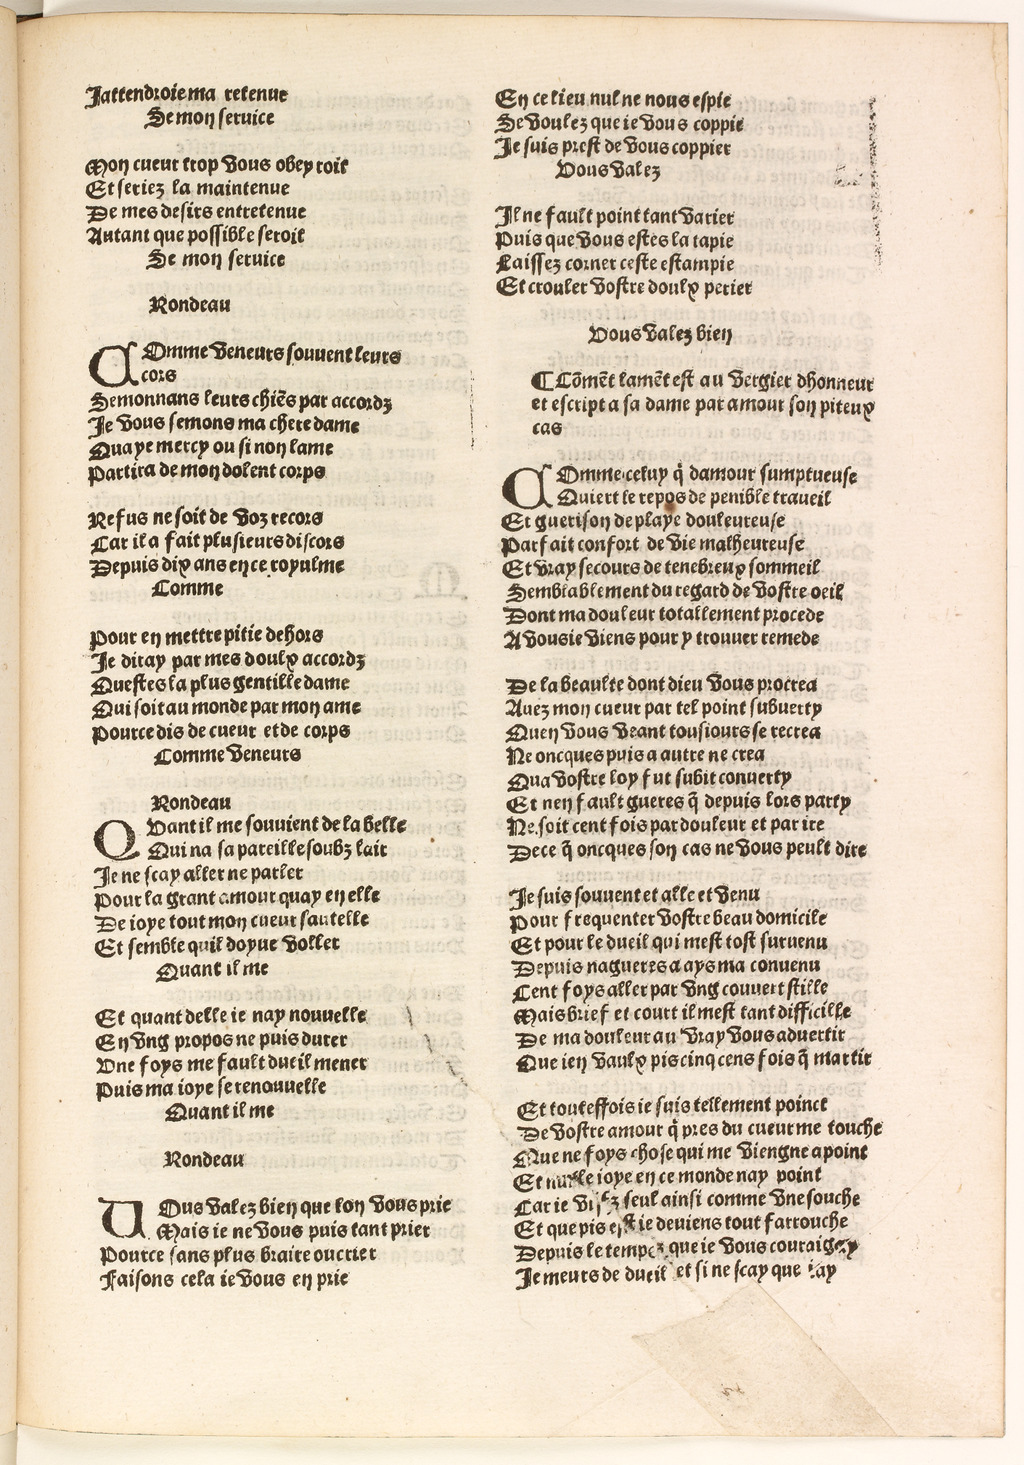 Jattendroie ma retenue
Se mon seruice
Mon cueur trop vous obeyroit
Et seriez la maintenue
De mes desirs entretenue
Autant que possible seroit
Se mon seruice
Rondeau
COmme veneurs souuent leurs
cors
Semonnans leurs chiẽs par accordz
Je vous semons ma chere dame
Quaye mercy ou si non lame
Partira de mon dolent corps
Refus ne soit de voz recors
Car il a fait plusieurs discors
Depuis dix ans en ce royulme
Comme
Pour en mettre pitie dehors
Je diray par mes doulx accordz
Questes la plus gentille dame
Qui soit au monde par mon ame
Pource dis de cueur et de corps
Comme veneurs
Rondeau
QVant il me souuient de la belle
Qui na sa pareille soubz lait
Je ne scay aller ne parler
Pour la grant amour quay en elle
De ioye tout mon cueur sautelle
Et semble quil doyue voller
Quant il me
Et quant delle ie nay nouuelle
En vng propos ne puis durer
Vne foys me fault dueil mener
Puis ma ioye se renouuelle
Quant il me
Rondeau
VOus valez bien que lon vous prie
Mais ie ne vous puis tant prier
Pource sans plus braire ou crier
Faisons cela ie vous en prie
En ce lieu nul ne nous espie
Se voulez que ie vous coppie
Je suis prest de vous coppier
Vous valez
Il ne fault point tant varier
Puis que vous estes la tapie
Laissez corner ceste estampie
Et crouler vostre doulx perier
Vous valez bien
¶ Cõmẽt lamẽt est au vergier dhonneur
et escript a sa dame par amour son piteux
cas
COmme celuy q̃ damour sumptueuse
Quiert le repos de penible traueil
Et guerison de playe douleureuse
Parfait confort de vie malheureuse
Et vray secours de tenebreux sommeil
Semblablement du regard de vostre oeil
Dont ma douleur totallement procede
A vous ie viens pour y trouuer remede
De la beaulte dont dieu vous procrea
Auez mon cueur par tel point subuerty
Quen vous veant tousiours se recrea
Ne oncques puis a autre ne crea
Qua vostre loy fut subit conuerty
Et nen fault gueres q̃ depuis lors party
Ne soit cent fois par douleur et par ire
De ce q̃ oncques son cas ne vous peult dire
Je suis souuent et alle et venu
Pour frequenter vostre beau domicile
Et pour le dueil qui mest tost suruenu
Depuis nagueres a ays ma conuenu
Cent foys aller par vng couuert stille
Mais brief et court il mest tant difficille
De ma douleur au vray vous aduertir
Que ien vaulx pis cinq cens fois q̃ martir
Et touteffois ie suis tellement poinct
De vostre amour q̃ pres du cueur me touche
Que ne foys chose qui me viengne a point
Et nulle ioye en ce monde nay point
Car ie vis seul ainsi comme vne souche
Et que pis est ie deuiens tout farrouche
Depuis le temps que ie vous couraigay
Je meurs de dueil et si ne scay que iay